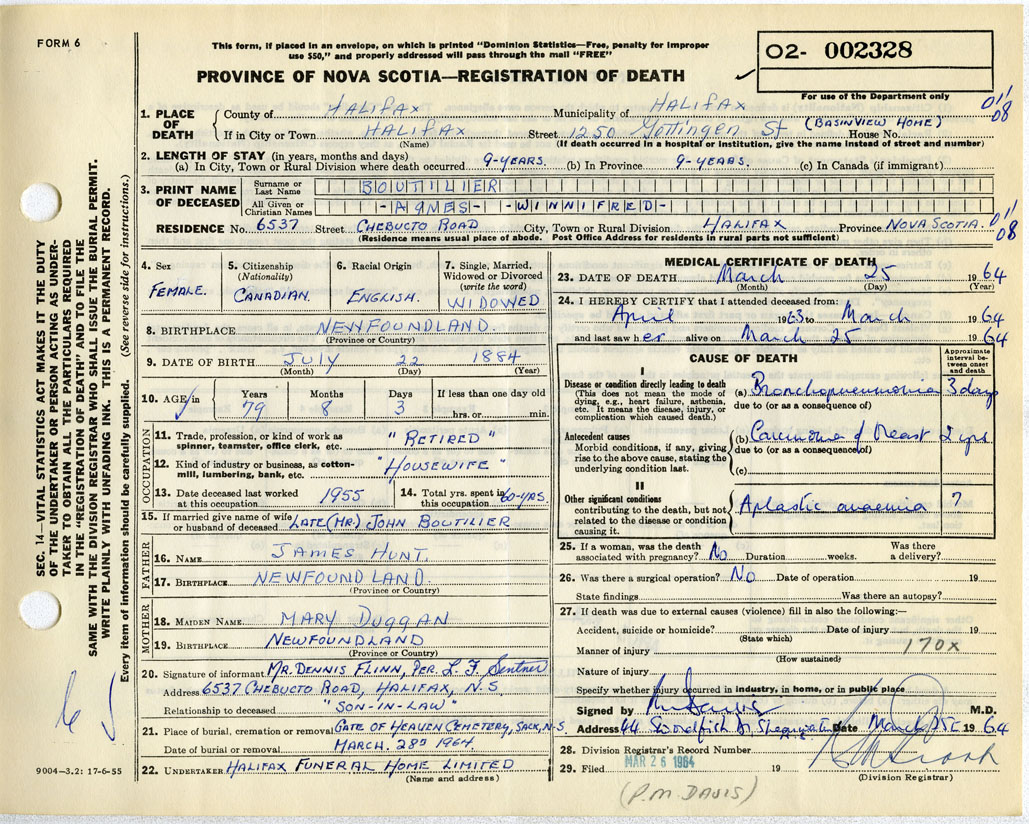 FORM 6
This form, if placed in an envelope, on which is printed "Dominion Statistics—Free, penalty for improper
use $50," and properly addressed will pass through the mail "FREE"
PROVINCE OF NOVA SCOTIA—REGISTRATION OF DEATH
02- 002328
For use of the Department only
1. PLACE OF DEATH
County of HALIFAX Municipality of HALIFAX
If in City or Town HALIFAX Street 1250 Gottingen St (BASINVIEW HOME) House No.
(Name) (If death occurred in a hospital or institution, give the name instead of street and number)
01/08
2. LENGTH OF STAY (in years, months and days)
(a) In City, Town or Rural Division where death occurred 9-YEARS. (b) In Province 9-YEARS. (c) In Canada (if immigrant)
3. PRINT NAME OF DECEASED
Surname or Last Name BOUTILIER
All Given or Christian Names -AGMES- -WINNIFRED-
RESIDENCE No. 6537 Street CHEBUCTO ROAD City, Town or Rural Division HALIFAX Province NOVA SCOTIA.
(Residence means usual place of abode. Post Office Address for residents in rural parts not sufficient)
01/08
4. Sex FEMALE.
5. Citizenship (Nationality) CANADIAN.
6. Racial Origin ENGLISH.
7. Single, Married, Widowed or Divorced (write the word) WIDOWED
8. BIRTHPLACE NEWFOUNDLAND.
(Province or Country)
9. DATE OF BIRTH JULY 22 1884
(Month) (Day) (Year)
10. AGE in Years 79 Months 8 Days 3 If less than one day old hrs. or min.
OCCUPATION
11. Trade, profession, or kind of work as spinner, teamster, office clerk, etc. "RETIRED"
12. Kind of industry or business, as cotton-mill, lumbering, bank, etc. "HOUSEWIFE"
13. Date deceased last worked at this occupation 1955
14. Total yrs. spent in this occupation 60-YRS.
15. If married give name of wife or husband of deceased LATE (MR.) JOHN BOUTILIER
FATHER
16. NAME JAMES HUNT.
17. BIRTHPLACE NEWFOUNDLAND.
(Province or Country)
MOTHER
18. MAIDEN NAME MARY DUGGAN
19. BIRTHPLACE NEWFOUNDLAND
(Province or Country)
20. Signature of informant MR. DENNIS FLINN, PER. L. F. Sentner
Address 6537 CHEBUCTO ROAD, HALIFAX, N.S
Relationship to deceased "SON-IN-LAW"
21. Place of burial, cremation or removal GATE OF HEAVEN CEMETERY, SACK, N-S.
Date of burial or removal MARCH. 28th 1964.
22. UNDERTAKER HALIFAX FUNERAL HOME LIMITED
(Name and address)
MEDICAL CERTIFICATE OF DEATH
23. DATE OF DEATH March 25 1964
(Month) (Day) (Year)
24. I HEREBY CERTIFY that I attended deceased from:
April 1963 to March 1964
and last saw her alive on March 25 1964
CAUSE OF DEATH
Approximate interval between onset and death
I
Disease or condition directly leading to death
(This does not mean the mode of dying, e.g., heart failure, asthenia, etc. It means the disease, injury, or complication which caused death.)
(a) Bronchopneumonia 3 days
due to (or as a consequence of)
Antecedent causes
Morbid conditions, if any, giving rise to the above cause, stating the underlying condition last.
(b) Carcinoma of breast 2 yrs
due to (or as a consequence of)
(c)
II
Other significant conditions contributing to the death, but not related to the disease or condition causing it.
Aplastic anaemia ?
25. If a woman, was the death associated with pregnancy? No Duration weeks. Was there a delivery?
26. Was there a surgical operation? No Date of operation 19
State findings Was there an autopsy?
27. If death was due to external causes (violence) fill in also the following:—
Accident, suicide or homicide? Date of injury 19
(State which)
Manner of injury 170x
(How sustained)
Nature of injury
Specify whether injury occurred in industry, in home, or in public place
Signed by M.D.
Address 44 Date March 25 1964
28. Division Registrar's Record Number
29. Filed MAR 26 1964 19
(Division Registrar)
(P.M. DAVIS)
SEC. 14—VITAL STATISTICS ACT MAKES IT THE DUTY
OF THE UNDERTAKER OR PERSON ACTING AS UNDER-
TAKER TO OBTAIN ALL THE PARTICULARS REQUIRED
IN THE "REGISTRATION OF DEATH" AND TO FILE THE
SAME WITH THE DIVISION REGISTRAR WHO SHALL ISSUE THE BURIAL PERMIT.
WRITE PLAINLY WITH UNFADING INK. THIS IS A PERMANENT RECORD.
Every item of information should be carefully supplied. (See reverse side for instructions.)
9004—3.2: 17-6-55